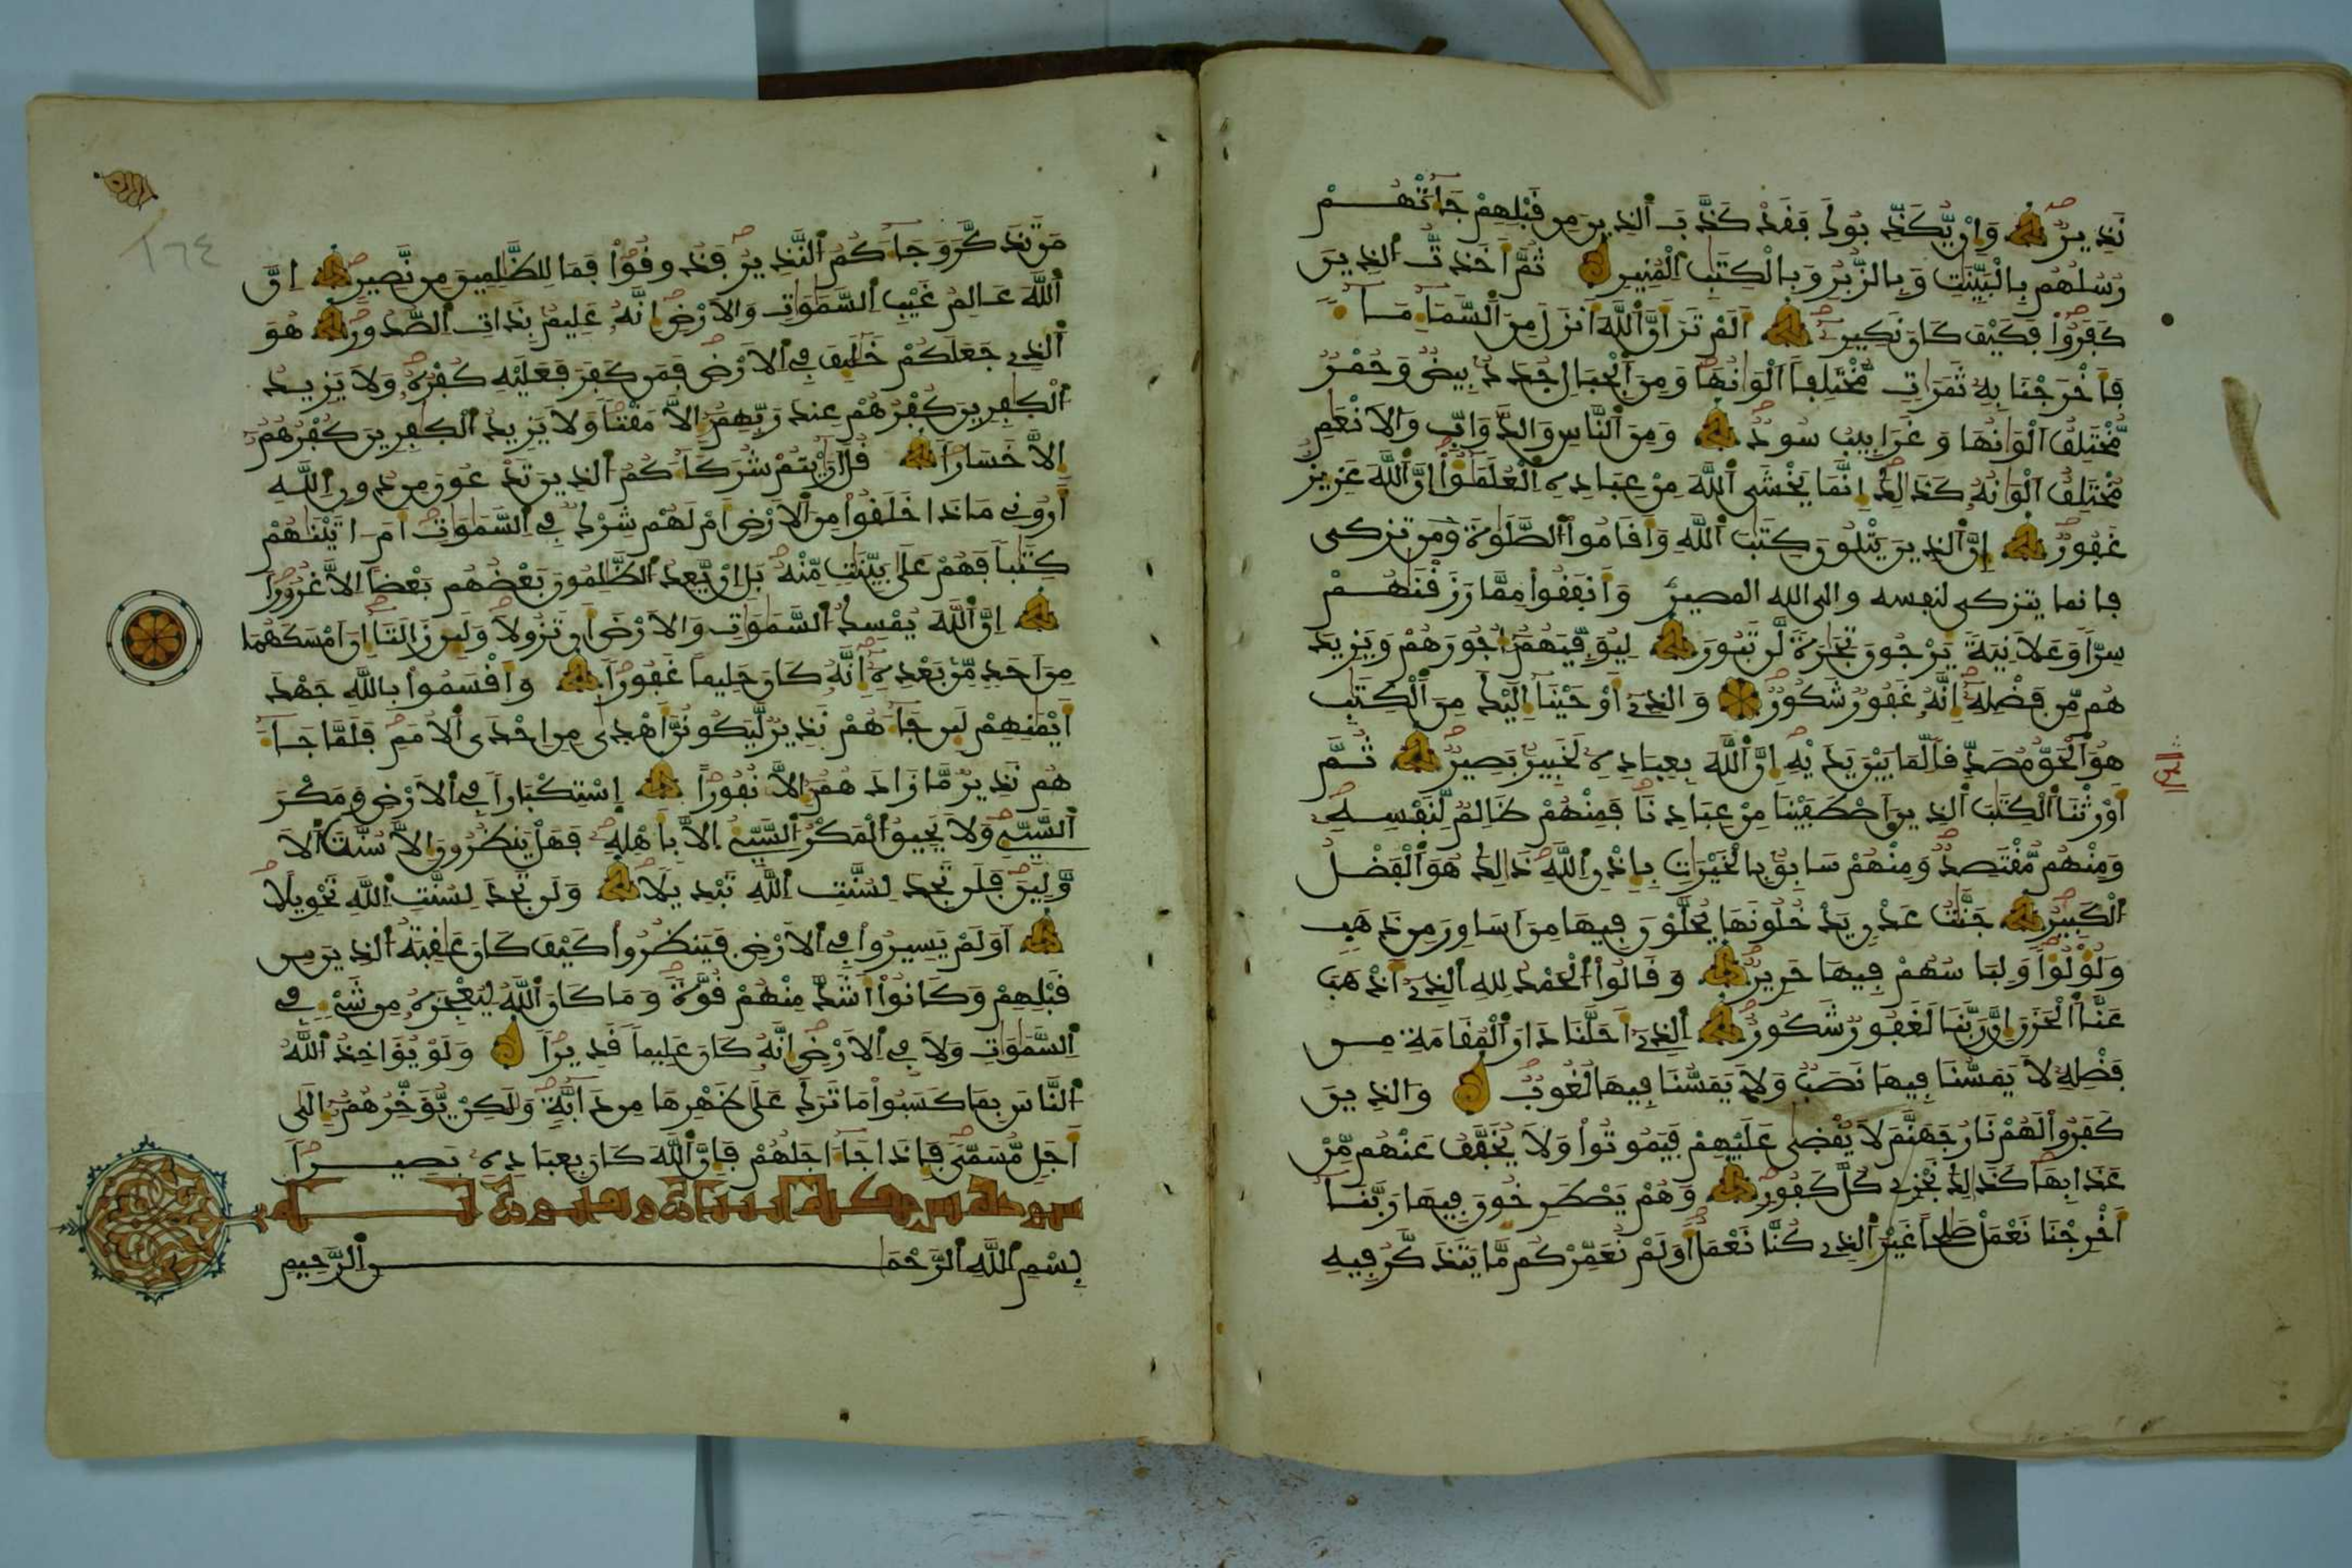 نذير وان يكذبوك فقد كذب الذين من قبلهم جاءتهم
رسلهم بالبينت وبالزبر وبالكتب المنير ثم اخذت الذين
كفروا فكيف كان نكير الم تر ان الله انزل من السماء ماء
فاخرجنا به ثمرات مختلفا الوانها ومن الجبال جدد بيض وحمر
مختلف الوانها وغرابيب سود ومن الناس والدواب والانعم
مختلف الوانه كذلك انما يخشى الله من عباده العلمؤا ان الله عزيز
غفور ان الذين يتلون كتب الله واقاموا الصلوة ومن تزكى
فانما يتزكى لنفسه والى الله المصير وانفقوا مما رزقنهم
سرا وعلانية يرجون تجرة لن تبور ليوفيهم اجورهم ويزيد
هم من فضله انه غفور شكور والذي اوحينا اليك من الكتب
هو الحق مصدقا لما بين يديه ان الله بعباده لخبير بصير ثم
اورثنا الكتب الذين اصطفينا من عبادنا فمنهم ظالم لنفسه
ومنهم مقتصد ومنهم سابق بالخيرات باذن الله ذلك هو الفضل
الكبير جنت عدن يدخلونها يحلون فيها من اساور من ذهب
ولؤلؤا ولباسهم فيها حرير وقالوا الحمد لله الذي اذهب
عنا الحزن ان ربنا لغفور شكور الذي احلنا دار المقامة من
فضله لا يمسنا فيها نصب ولا يمسنا فيها لغوب والذين
كفروا لهم نار جهنم لا يقضى عليهم فيموتوا ولا يخفف عنهم من
عذابها كذلك نجزي كل كفور وهم يصطرخون فيها ربنا
اخرجنا نعمل صلحا غير الذي كنا نعمل اولم نعمركم ما يتذكر فيه
١٦٤
من تذكر وجاءكم النذير فذوقوا فما للظلمين من نصير ان
الله عالم غيب السموات والارض انه عليم بذات الصدور هو
الذي جعلكم خليف في الارض فمن كفر فعليه كفره ولا يزيد
الكفرين كفرهم عند ربهم الا مقتا ولا يزيد الكفرين كفرهم
الا خسارا قل اريتم شركاءكم الذين تدعون من دون الله
اروني ماذا خلقوا من الارض ام لهم شرك في السموات ام اتينهم
كتبا فهم على بينت منه بل ان يعد الظلمون بعضهم بعضا الا غرورا
ان الله يمسك السموات والارض ان تزولا ولين زالتا ان امسكهما
من احد من بعده انه كان حليما غفورا واقسموا بالله جهد
ايمنهم لين جاءهم نذير ليكونن اهدى من احدى الامم فلما جاء
هم نذير ما زادهم الا نفورا استكبارا في الارض ومكر
السيئ ولا يحيق المكر السيئ الا باهله فهل ينظرون الا سنت الا
ولين فلن تجد لسنت الله تبديلا ولن تجد لسنت الله تحويلا
اولم يسيروا في الارض فينظروا كيف كان عقبة الذين من
قبلهم وكانوا اشد منهم قوة وما كان الله ليعجزه من شيء في
السموات ولا في الارض انه كان عليما قديرا ولو يؤاخذ الله
الناس بما كسبوا ما ترك على ظهرها من دابة ولكن يؤخرهم الى
اجل مسمى فاذا جاء اجلهم فان الله كان بعباده بصيرا
سورة يس مكية
بسم الله الرحمن الرحيم